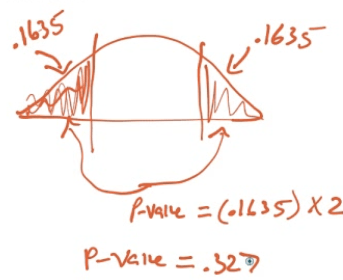 .1635
.1635
P-value = (.1635) × 2
P-value = .327